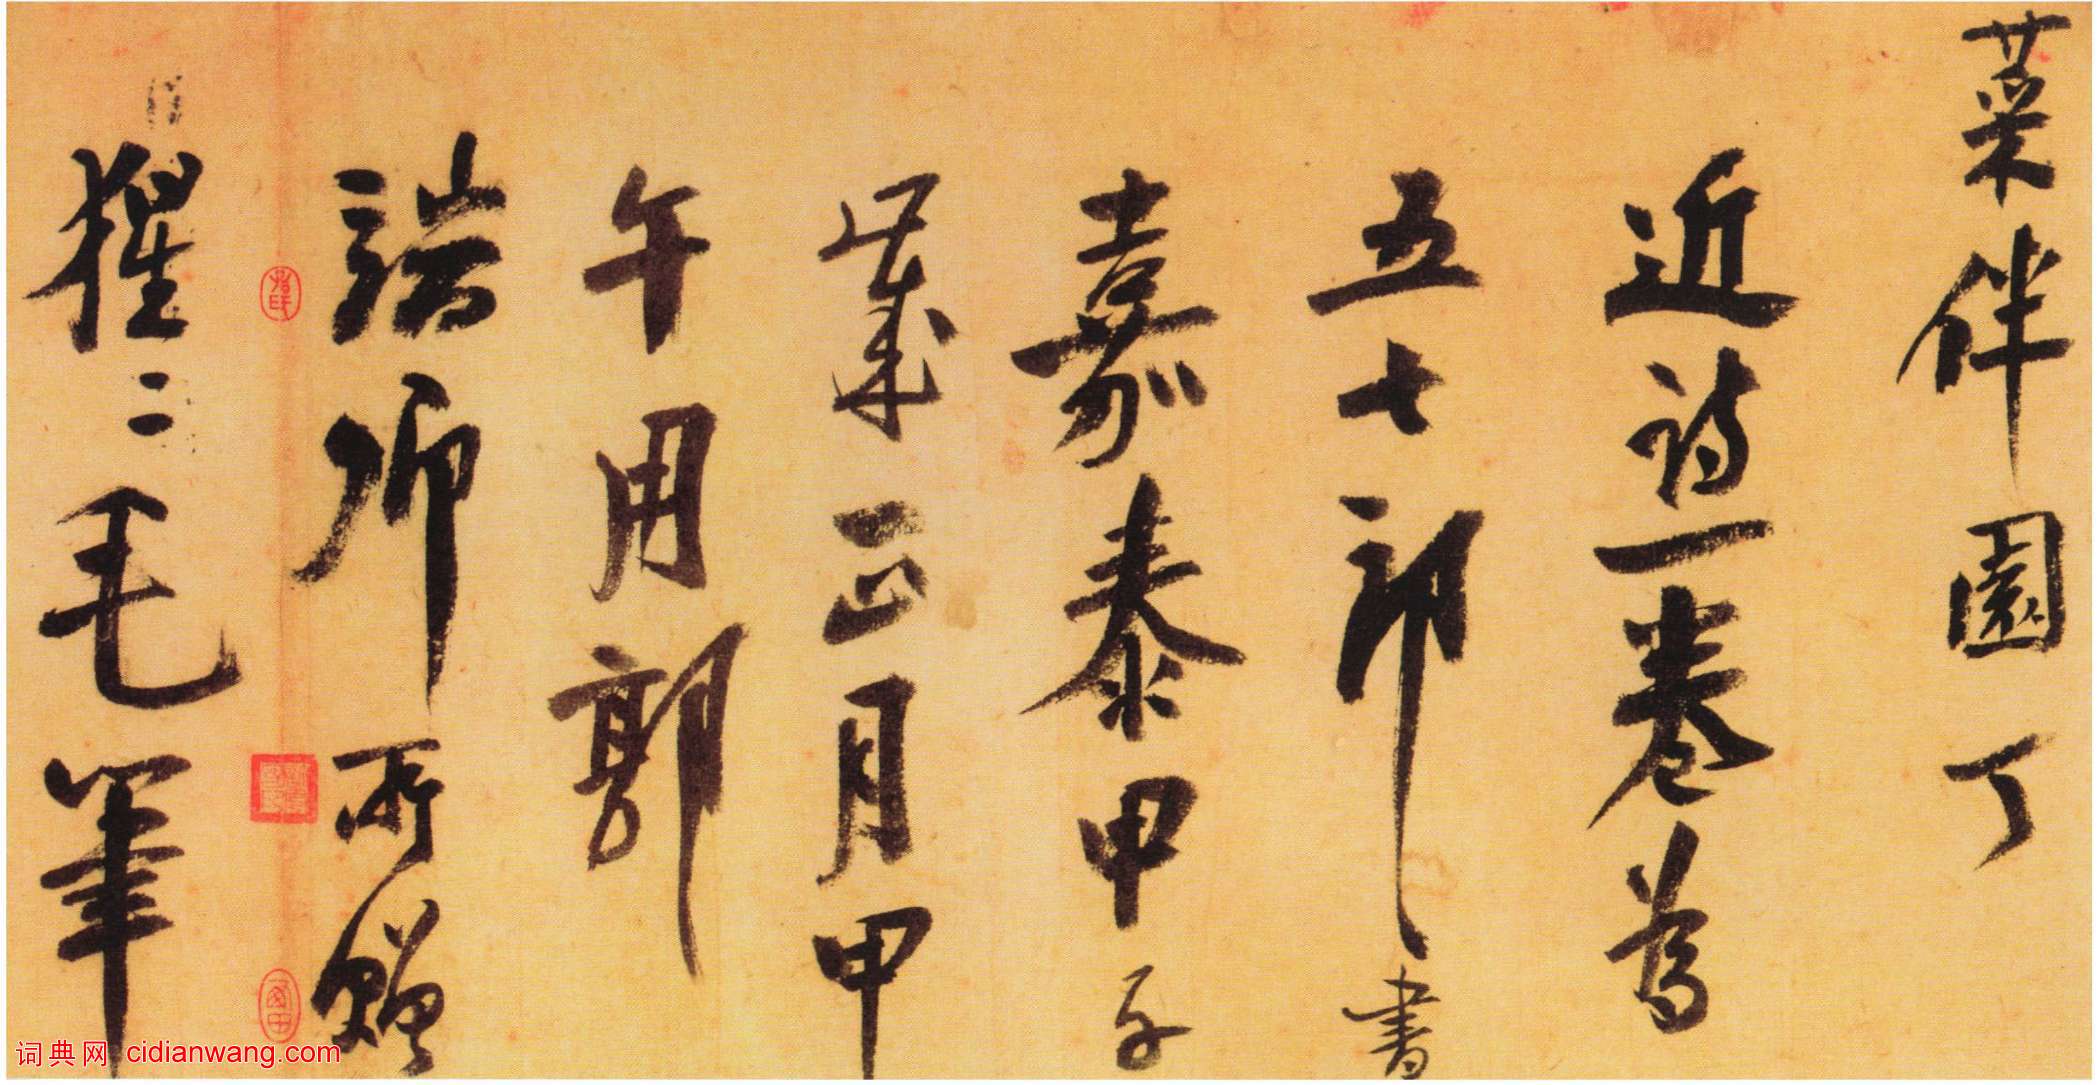 菜伴園丁
近詩一卷為
五七郎書
嘉泰甲子
歲正月甲
午用郭
端卿所贈
猩〻毛筆
词典网 cidianwang.com